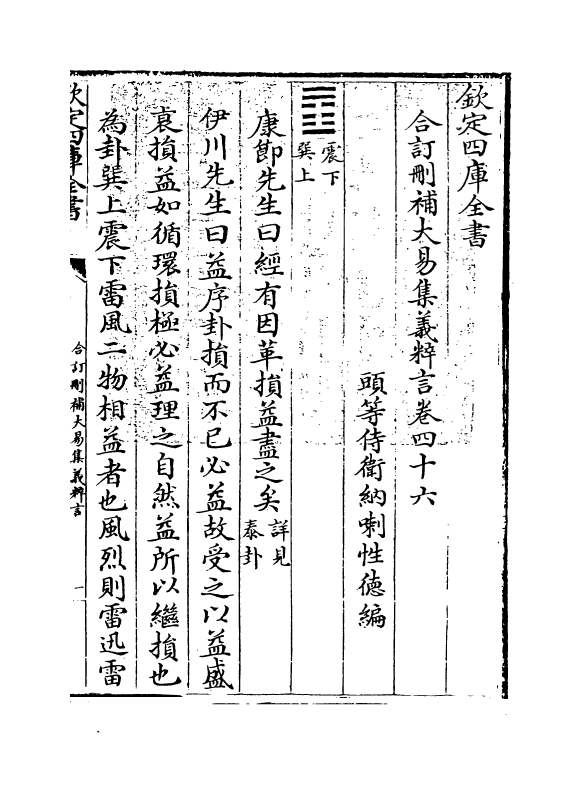 欽定四庫全書
合訂刪補大易集義粹言卷四十六
頭等侍衛納喇性德編
䷩
震下
巽上
康節先生曰經有因革損益盡之矣詳見
泰卦
伊川先生曰益序卦損而不已必益故受之以益盛
衰損益如循環損極必益理之自然益所以繼損也
為卦巽上震下雷風二物相益者也風烈則雷迅雷
欽定四庫全書
合訂刪補大易集義粹言
一